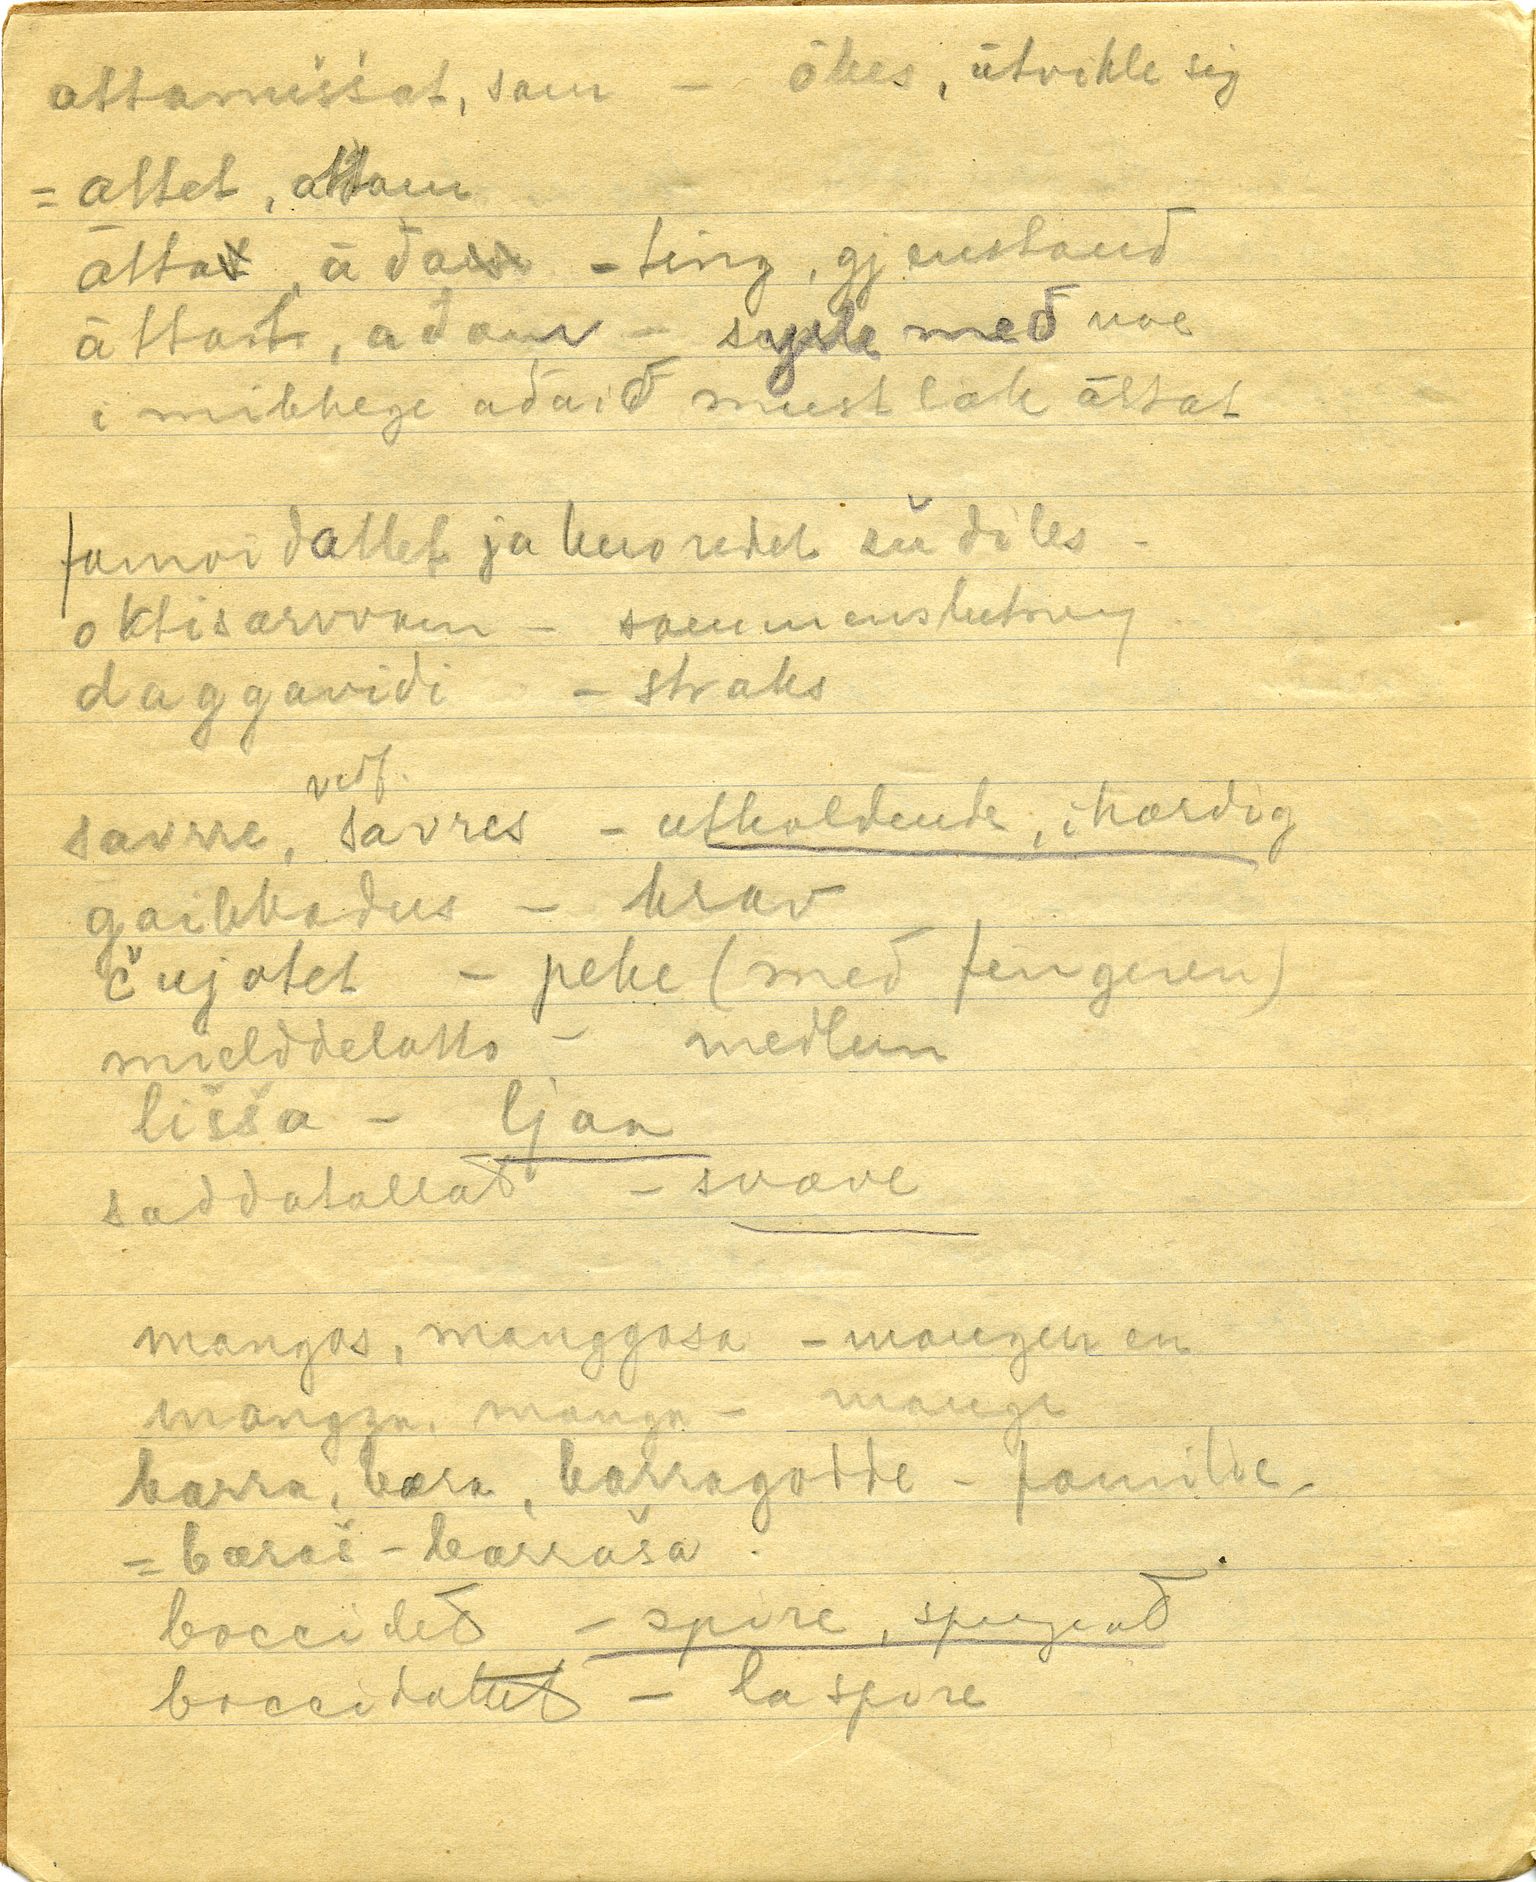 attamiššat, sam - ökes, ütvikle sig
= attet, attam
ātta, āđa - ting, gjenstand
āttat, ađam - sysle međ noe
i mikkege ađaiđ must læk āttat
famoidattet ja kuoredet šŭđiles -
oktisærvvam - sammenslutning
daggaviđi - straks
savrre, vedf. savres - utholdende, ihærdig
gaibbadus - krav
čujotet - peke (međ fingeren)
mielddelatto - medlem
lišša - ljaa
saddatallat - sveve
mangas, manggasa - mangen en
mangga, manga - mange
bærra, bæra, bærragodde - familie
= bæraš - bærraša
boccidet - spire, springe ut
boccidattet - la spire